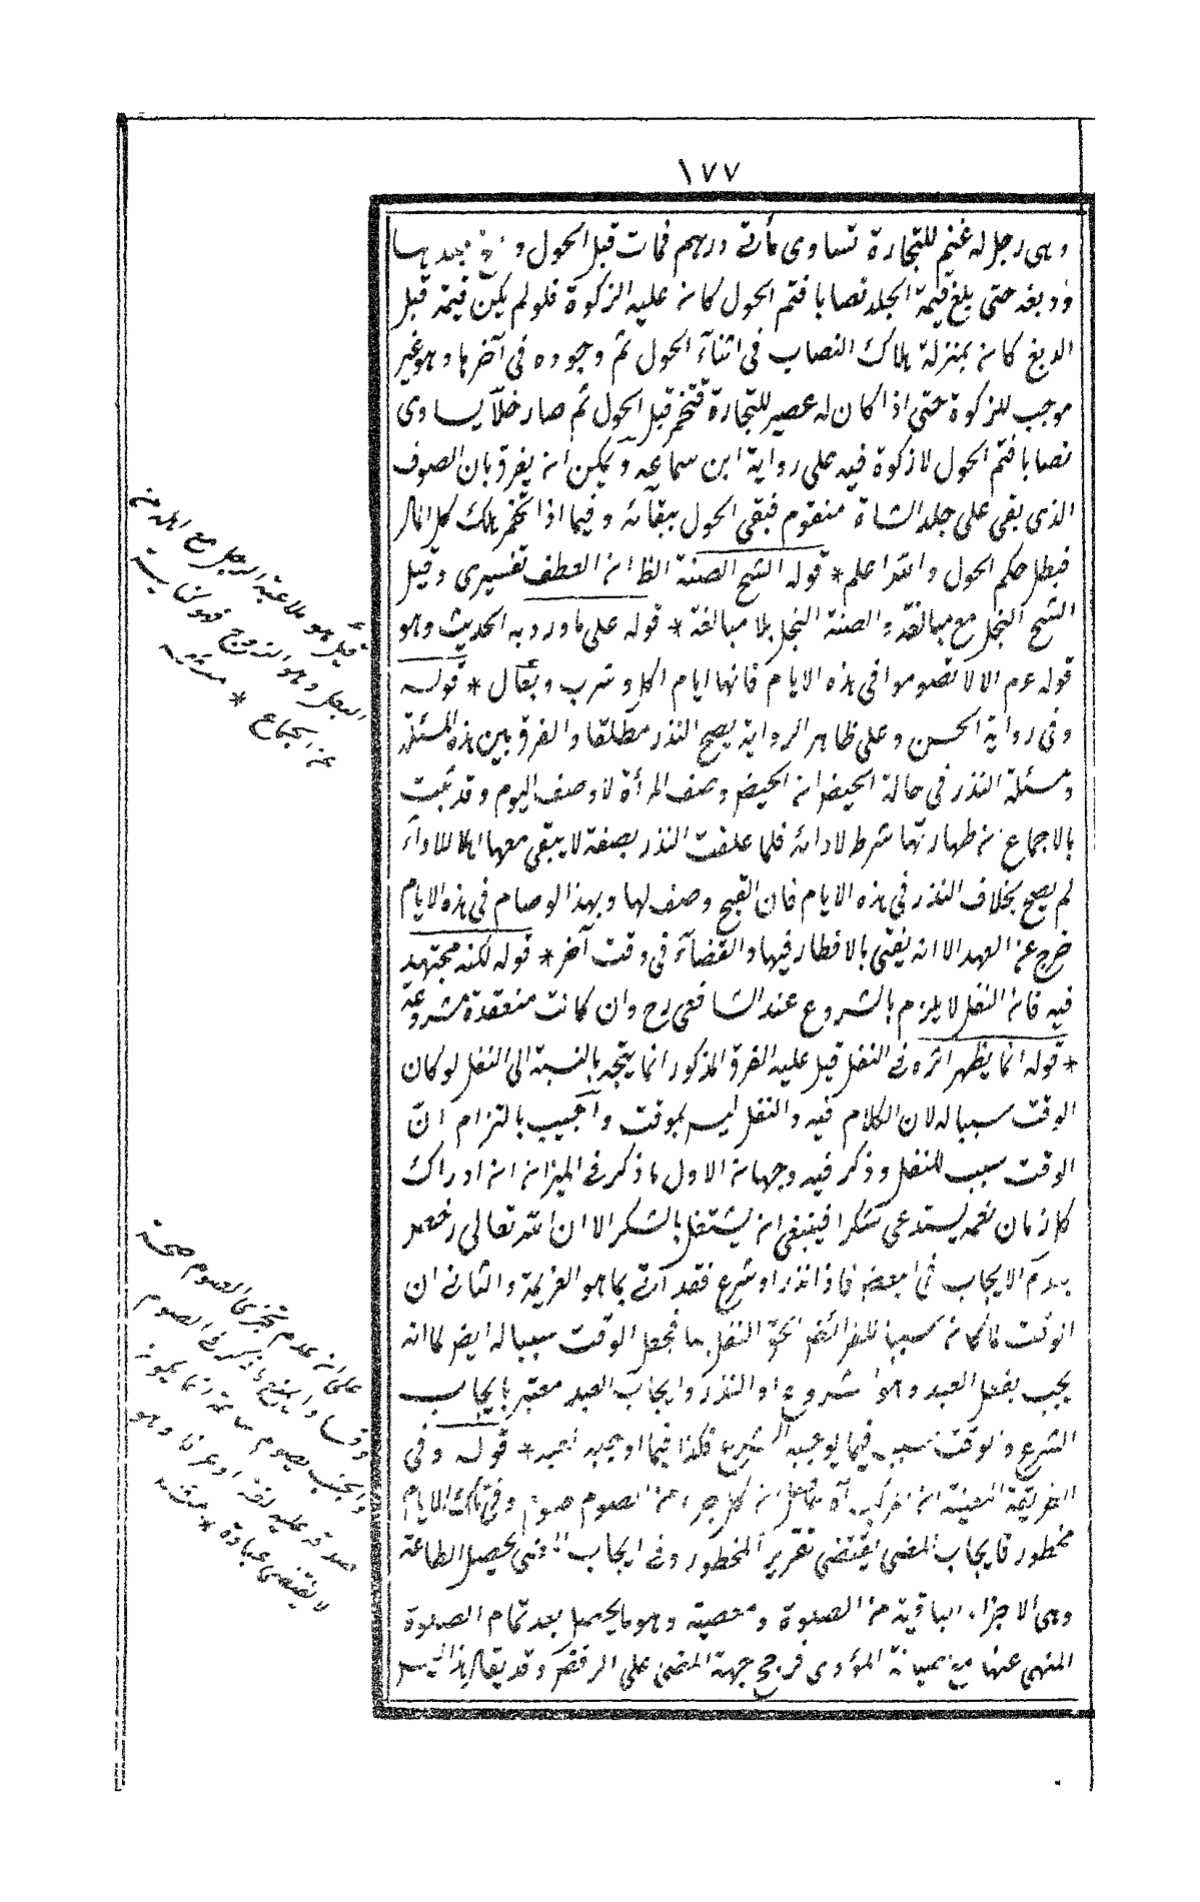 ١٧٧
وهى رجل له غنم للتجارة تساوى مأتى درهم فمات قبل الحول و
ودبغه حتى بلغ قيمة الجلد نصابا فتم الحول كان عليه الزكوة فلو لم يكن قيمته قبل
الدبغ كان بمنزلة هلاك النصاب فى اثناء الحول ثم وجوده فى آخرها وهو غير
موجب للزكوة حتى اذا كان له عصير للتجارة فتخمر قبل الحول ثم صار خلا يساوى
نصابا فتم الحول لا زكوة فيه على رواية ابن سماعه ويمكن ان يفرق بان الصوف
الذى بقى على جلد الشاة متقوم فبقى الحول ببقائه وفيما اذا تخمر هلك كل المال
فبطل حكم الحول والله اعلم * قوله الشح الضنة الظ ان العطف تفسيرى وقيل
الشح البخل مع مبالغة والضنة البخل بلا مبالغة * قوله على ما ورد به الحديث وهو
قوله عم الا لا تصوموا فى هذه الايام فانها ايام اكل وشرب وبعال * قوله
وفى رواية الحسن وعلى ظاهر الرواية يصح النذر مطلقا والفرق بين هذه المسئلة
ومسئلة النذر فى حالة الحيض ان الحيض وصف المرأة لا وصف اليوم وقد ثبت
بالاجماع ان طهارتها شرط لادائه فلما علقت النذر بصفة لا يبقى معها اهلا للاداء
لم يصح بخلاف النذر فى هذه الايام فان القبح وصف لها وبهذا لو صام فى هذه الايام
خرج عن العهد الا انه يفتى بالافطار فيها والقضاء فى وقت آخر * قوله لكنه مجتهد
فيه فان النفل لا يلزم بالشروع عند الشافعى رح وان كانت منعقدة مشروعة
* قوله انما يظهر اثره فى النفل قيل عليه الفرق المذكور انما يتجه بالنسبة الى النفل لو كان
الوقت سببا له لان الكلام فيه والنفل ليس بموقت وأجيب بالتزام ان
الوقت سبب للنفل وذكر فيه وجهان الاول ما ذكر فى الميزان ان ادراك
كل زمان نعمه يستدعى شكرا فينبغى ان يشتغل بالشكر الا ان الله تعالى رخص
بعدم الايجاب فى بعض فاذا نذر او شرع فقد اتى بما هو العزيمة والثانى ان
الوقت لما كان سببا للفرائض الحق النفل بها فجعل الوقت سببا له ايضا لما انه
يجب بفعل العبد وهو الشروع او النذر وايجاب العبد معتبر بايجاب
الشرع والوقت سبب فيما يوجبه الشرع فكذا فيما اوجبه العبد * قوله وفى
الطريقة المعينة ان المركب آه حاصل ان كل جزء من الصوم صوم وفى تلك الايام
محظور فايجاب المضى يقتضى تقرير المحظور وفى ايجاب المضى تحصيل الطاعة
وهى الاجزاء الباقية من الصلوة ومعصية وهو ما يحصل بعد تمام الصلوة
المنهى عنها مع صيانة المؤدى فرجح جهة المضى على الرفض وقد يقال هذا ليس
قيل هو ملاعبة الرجل مع اهله من
البعل وهو الزوج فهو كناية
عن الجماع * منه
على ان عدم تجزى الصوم صحة
لا يقتضى عبادة * منه